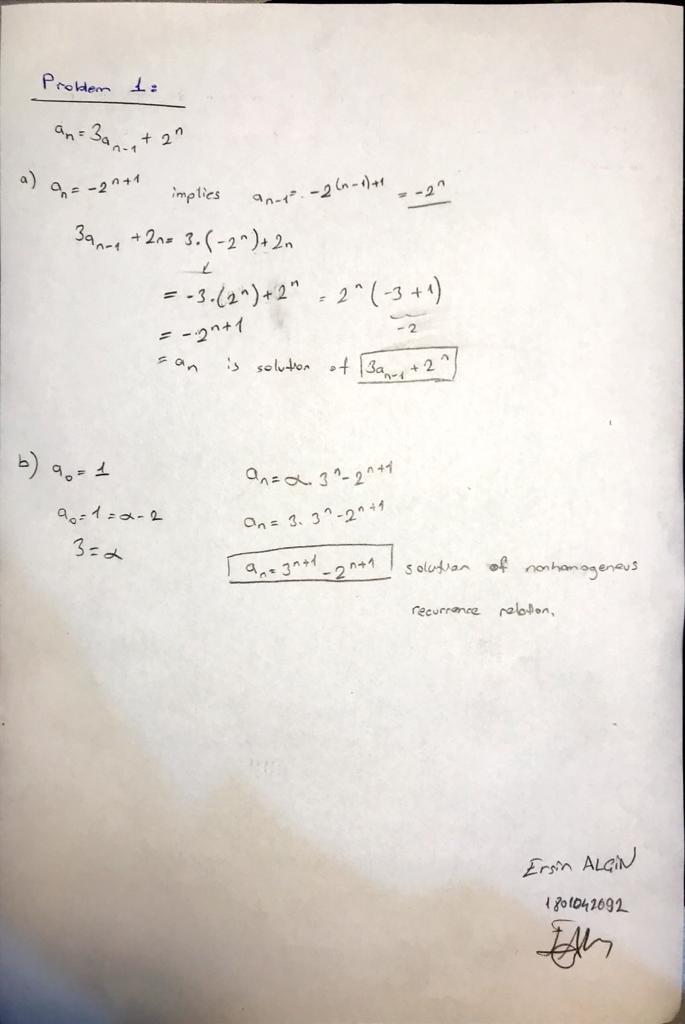 Problem 1:
aₙ = 3aₙ₋₁ + 2ⁿ
a) aₙ = -2ⁿ⁺¹ implies aₙ₋₁ = -2⁽ⁿ⁻¹⁾⁺¹ = -2ⁿ
3aₙ₋₁ + 2n = 3.(-2ⁿ) + 2n
= -3.(2ⁿ) + 2ⁿ = 2ⁿ(-3 + 1)
-2
= -2ⁿ⁺¹
= aₙ is solution of 3aₙ₋₁ + 2ⁿ
b) a₀ = 1 aₙ = α. 3ⁿ - 2ⁿ⁺¹
a₀ = 1 = α - 2 aₙ = 3. 3ⁿ - 2ⁿ⁺¹
3 = α
aₙ = 3ⁿ⁺¹ - 2ⁿ⁺¹ solution of nonhomogeneus
recurrence relation.
Ersin ALGIN
1801042092